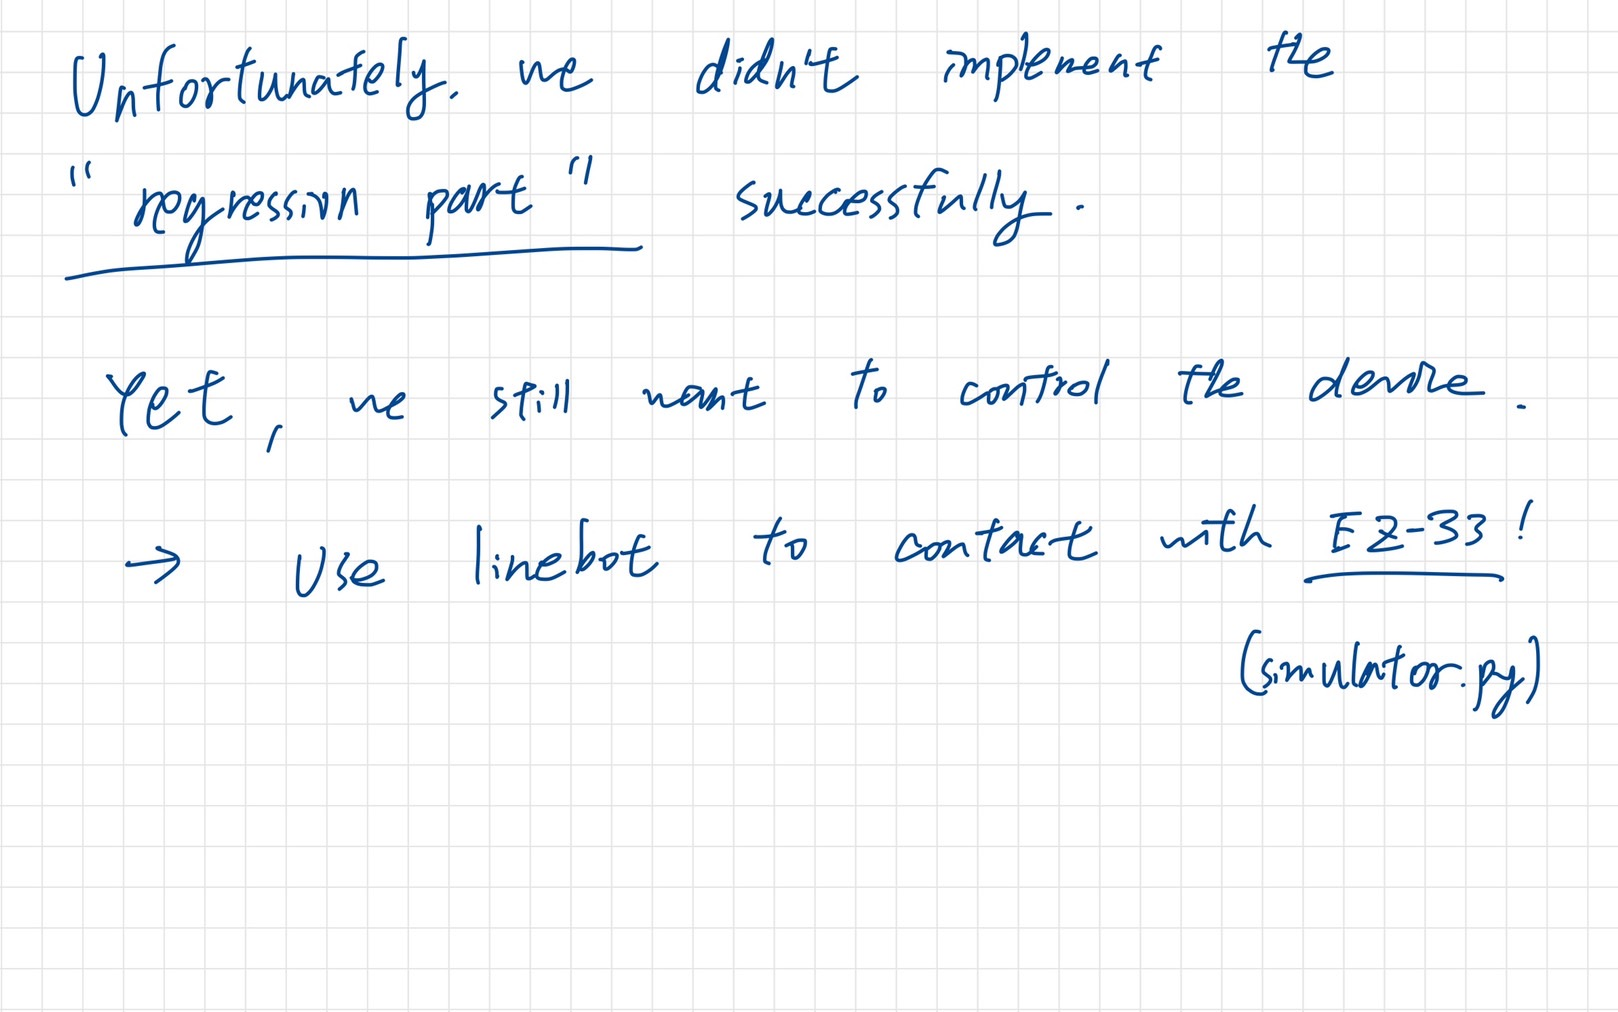 Unfortunately, we didn't implement the
"regression part" successfully.
Yet, we still want to control the device.
→ Use linebot to contact with EZ-33!
(simulator.py)